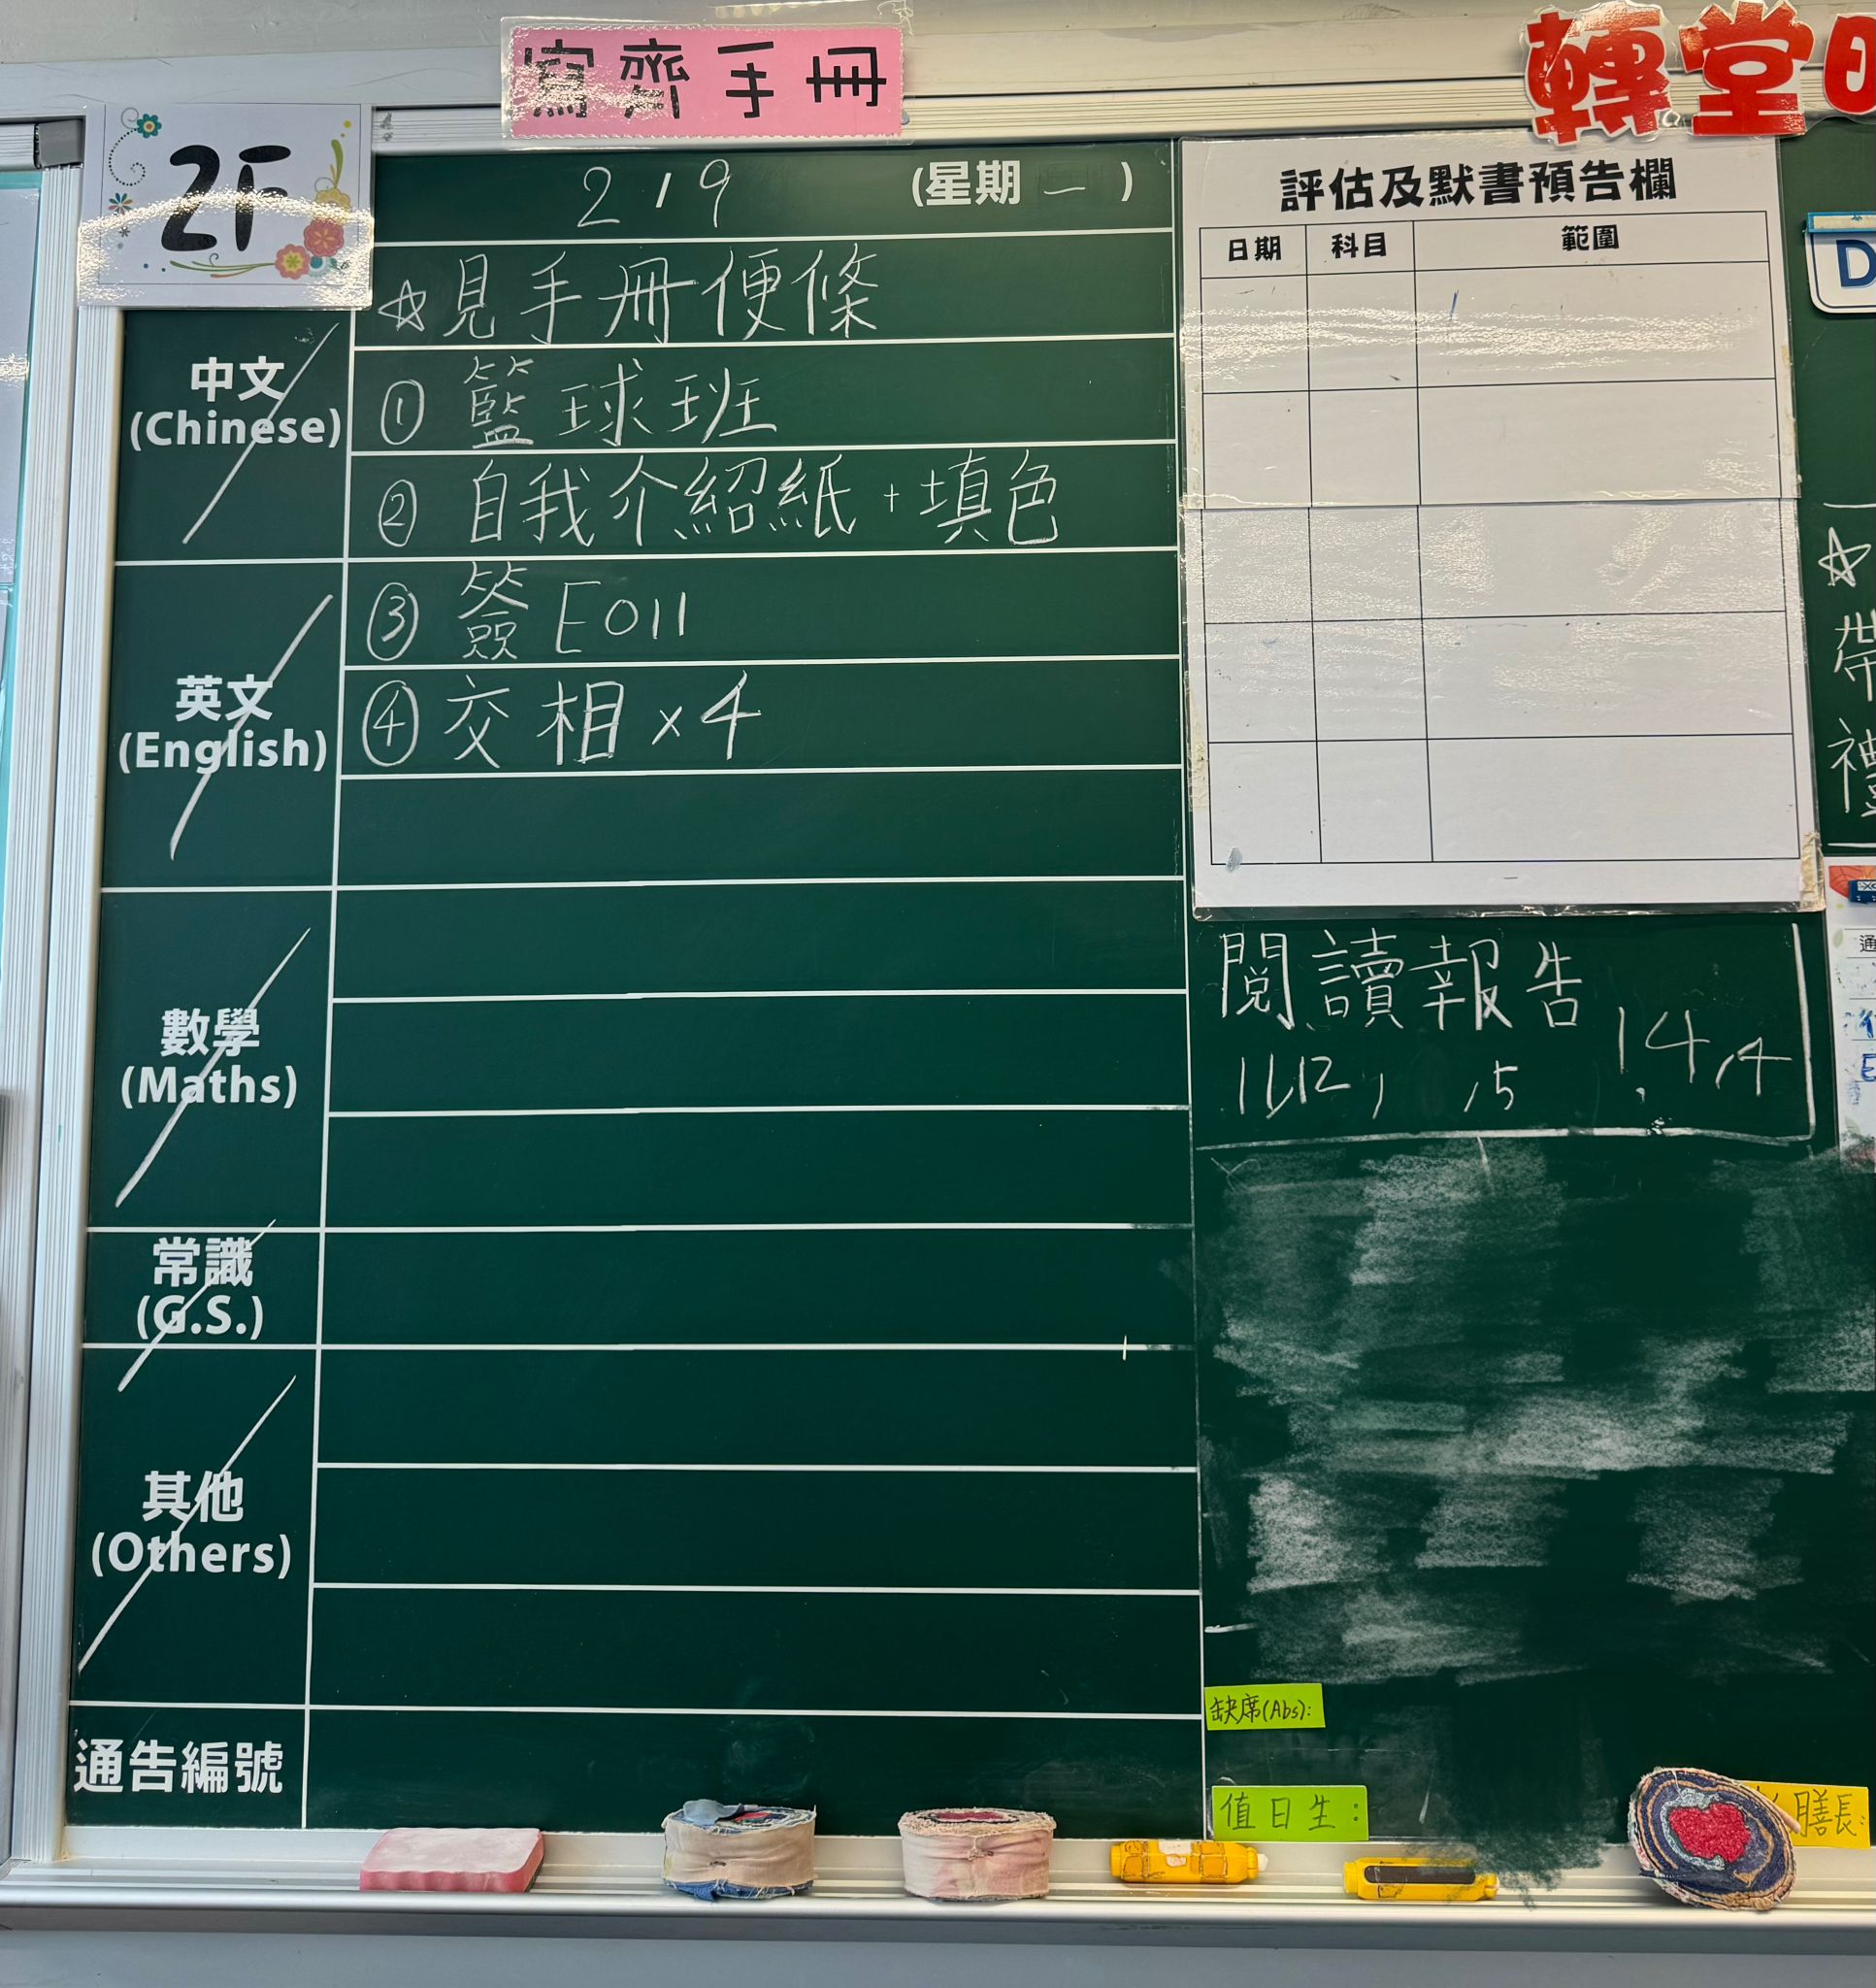 寫齊手冊
轉堂
2F
2/9 (星期一)
☆見手冊便條
中文
(Chinese)
① 籃球班
② 自我介紹紙+填色
英文
(English)
③ 簽E011
④ 交相×4
數學
(Maths)
常識
(G.S.)
其他
(Others)
通告編號
評估及默書預告欄
日期 科目 範圍
閱讀報告
11,12, ,5 14,4
缺席(Abs):
值日生:
膳長:
D
☆
帶
禮
通